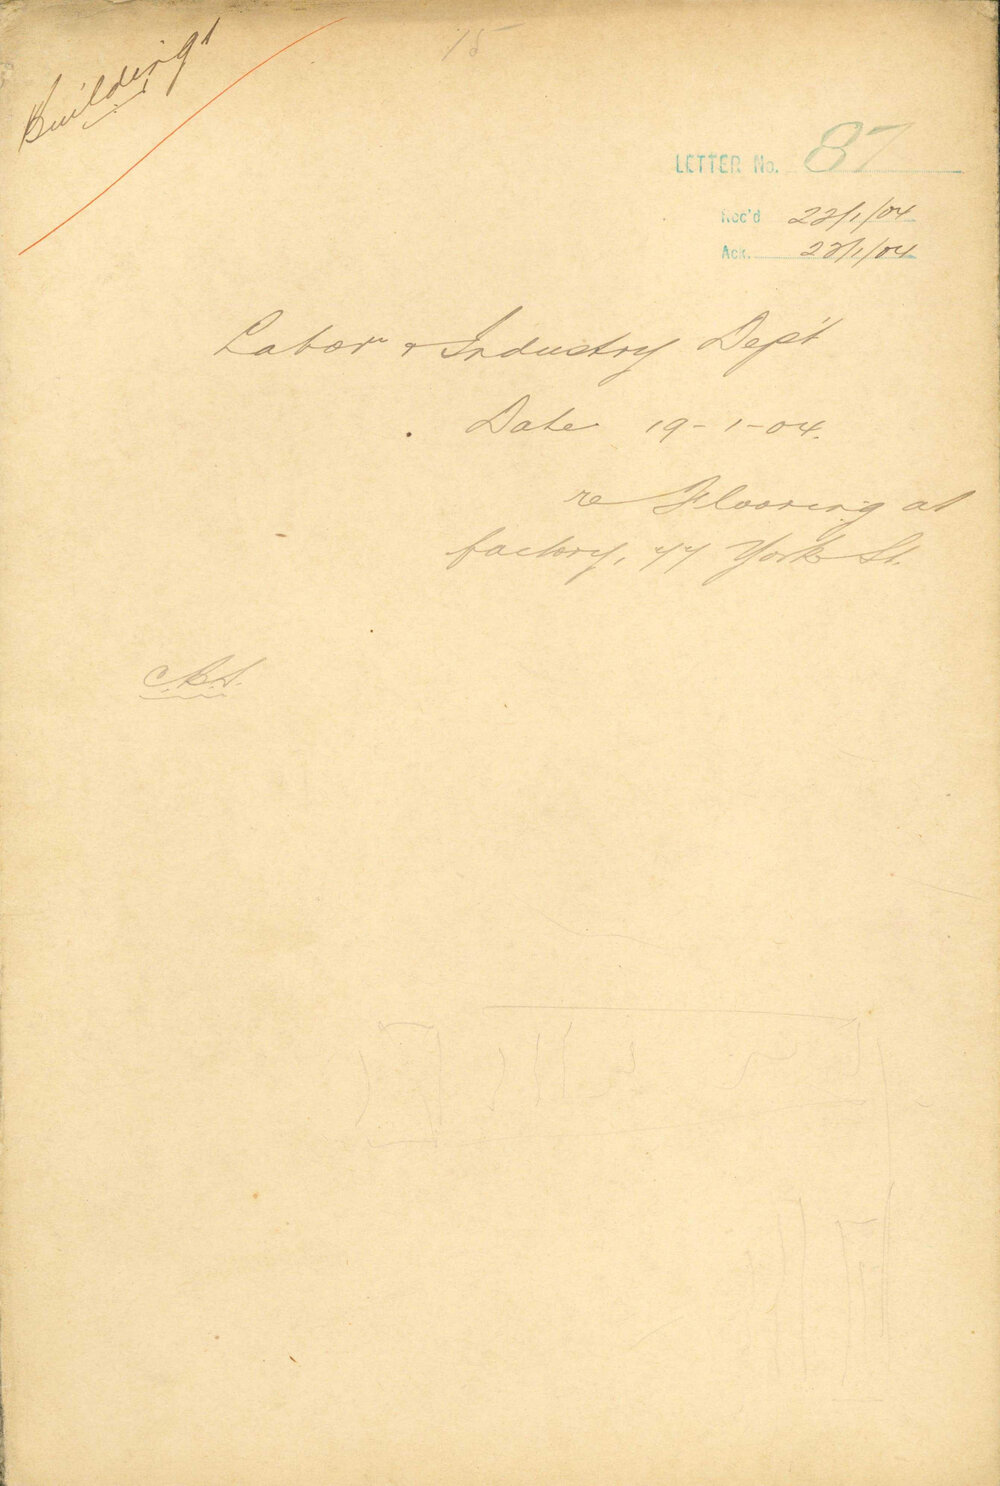 Buildings
15
LETTER No. 87
Rec'd 22/1/04
Ack. 22/1/04
Labor & Industry Dep't
Date 19-1-04.
re Flooring at
factory, 77 York St.